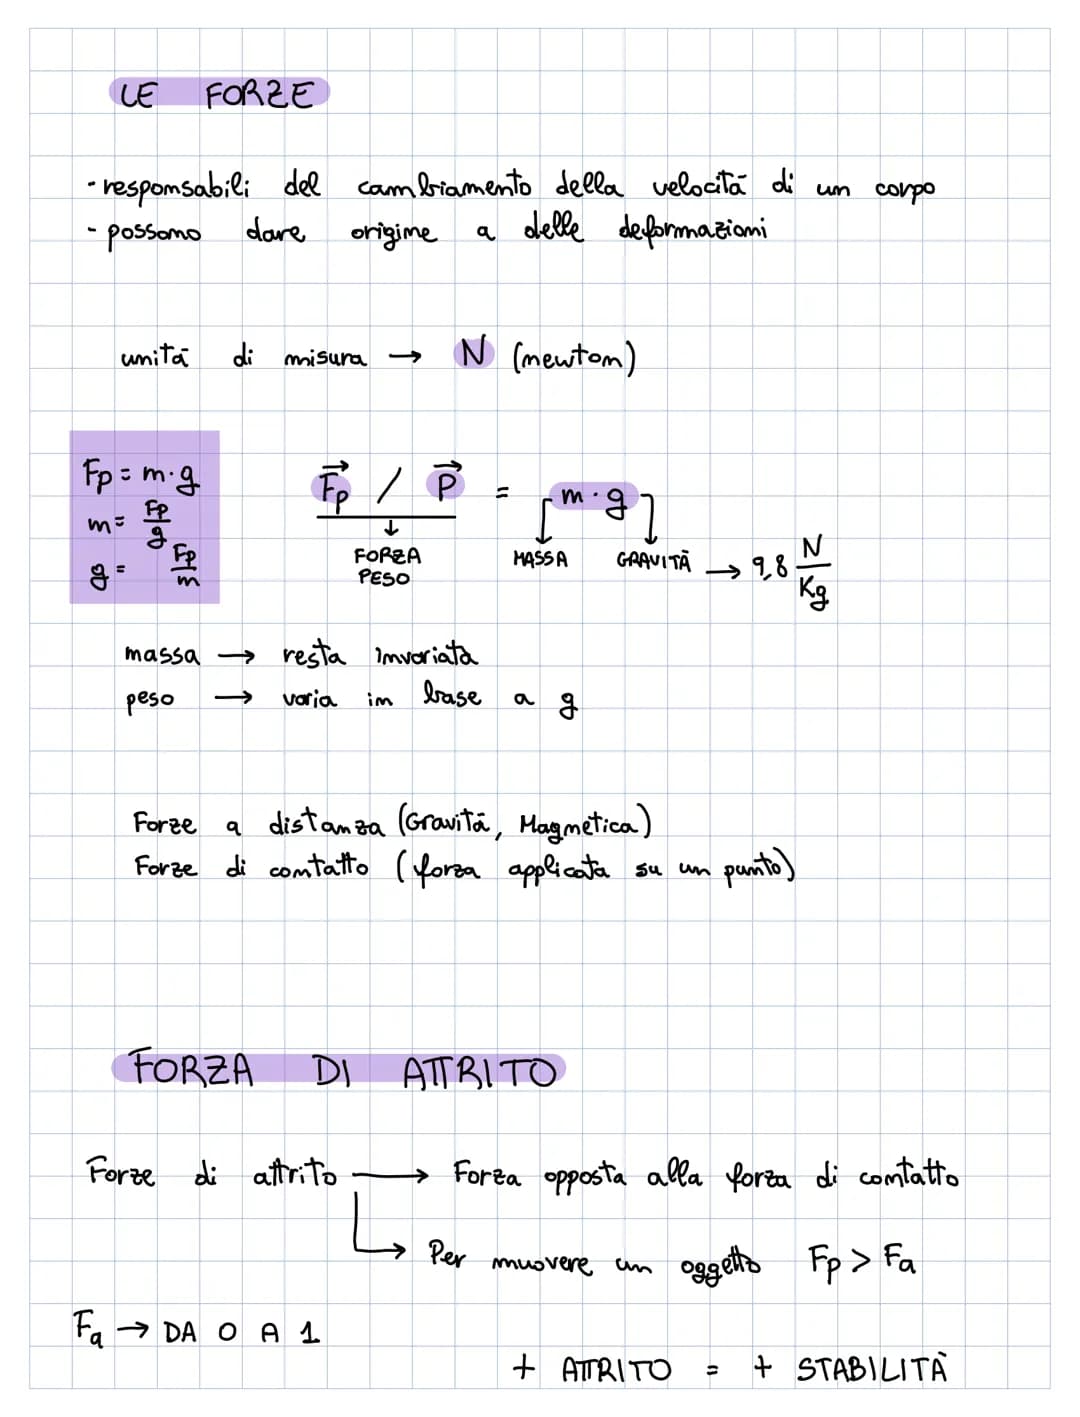 LE FORZE
- responsabili del cambiamento della velocità di un corpo
- possono dare origine a delle deformazioni
unità di misura → N (newton)
Fp = m·g
m = Fp/g
g = Fp/m
Fp / P = m·g
↓
FORZA PESO
MASSA GRAVITÀ → 9,8 N/Kg
massa → resta invariata
peso → varia in base a g
Forze a distanza (Gravità, Magnetica)
Forze di contatto (forza applicata su un punto)
FORZA DI ATTRITO
Forze di attrito → Forza opposta alla forza di contatto
→ Per muovere un oggetto Fp > Fa
Fa → DA 0 A 1
+ ATTRITO = + STABILITÀ